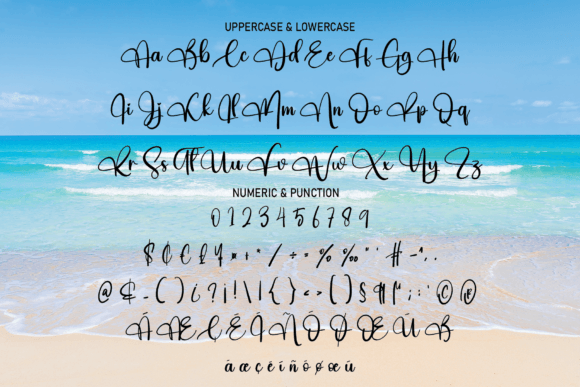 UPPERCASE & LOWERCASE
Aa Bb Cc Dd Ee Ff Gg Hh
Ii Jj Kk Ll Mm Nn Oo Pp Qq
Rr Ss Tt Uu Vv Ww Xx Yy Zz
NUMERIC & PUNCTION
0 1 2 3 4 5 6 7 8 9
$ ¢ € £ ¥ ¤ + * / ÷ = % ‰ " ' # - ^ . .
@ & _ - ( ) ¿ ? ¡ ! \ | { } < > [ ] § ¶ ; : © ®
Á Æ Ç É Í Ñ Ó Ø Œ Ú ß
á æ ç é í ñ ó ø œ ú